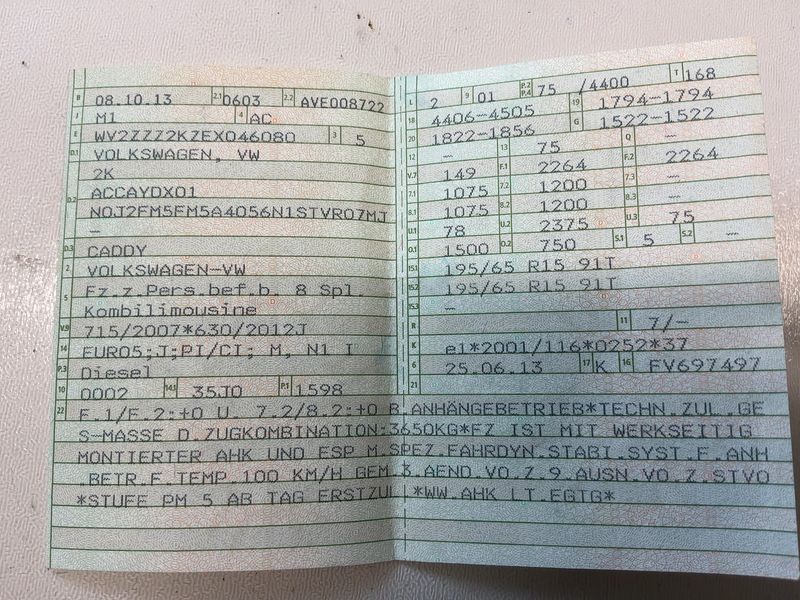 B 08.10.13 2.1 0603 2.2 AVE008722
J M1 4 AC
E WV2ZZZ2KZEX046080 3 5
D.1 VOLKSWAGEN, VW
2K
D.2 ACCAYDX01
N0J2FM5FM5A4056N1STVR07MJ
—
D.3 CADDY
2 VOLKSWAGEN-VW
5 Fz.z.Pers.bef.b. 8 Spl.
Kombilimousine
V.9 715/2007*630/2012J
14 EURO5;J;PI/CI; M, N1 I
P.3 Diesel
10 0002 14.1 35J0 P.1 1598
L 2 9 01 P.2 P.4 75 /4400 T 168
18 4406-4505 19 1794-1794
20 1822-1856 G 1522-1522
12 — 13 75 Q —
V.7 149 F.1 2264 F.2 2264
7.1 1075 7.2 1200 7.3 —
8.1 1075 8.2 1200 8.3 —
U.1 78 U.2 2375 U.3 75
O.1 1500 O.2 750 S.1 5 S.2 —
15.1 195/65 R15 91T
15.2 195/65 R15 91T
15.3 —
R 11 7/-
K e1*2001/116*0252*37
6 25.06.13 17 K 16 FV697497
21
22 F.1/F.2:+0 U. 7.2/8.2:+0 B.ANHÄNGEBETRIEB*TECHN.ZUL.GE
S-MASSE D.ZUGKOMBINATION:3650KG*FZ IST MIT WERKSEITIG
MONTIERTER AHK UND ESP M.SPEZ.FAHRDYN.STABI.SYST.F.ANH
.BETR.F.TEMP.100 KM/H GEM.3.AEND.VO.Z.9.AUSN.VO.Z.STVO
*STUFE PM 5 AB TAG ERSTZUL.*WW.AHK LT.EGTG*